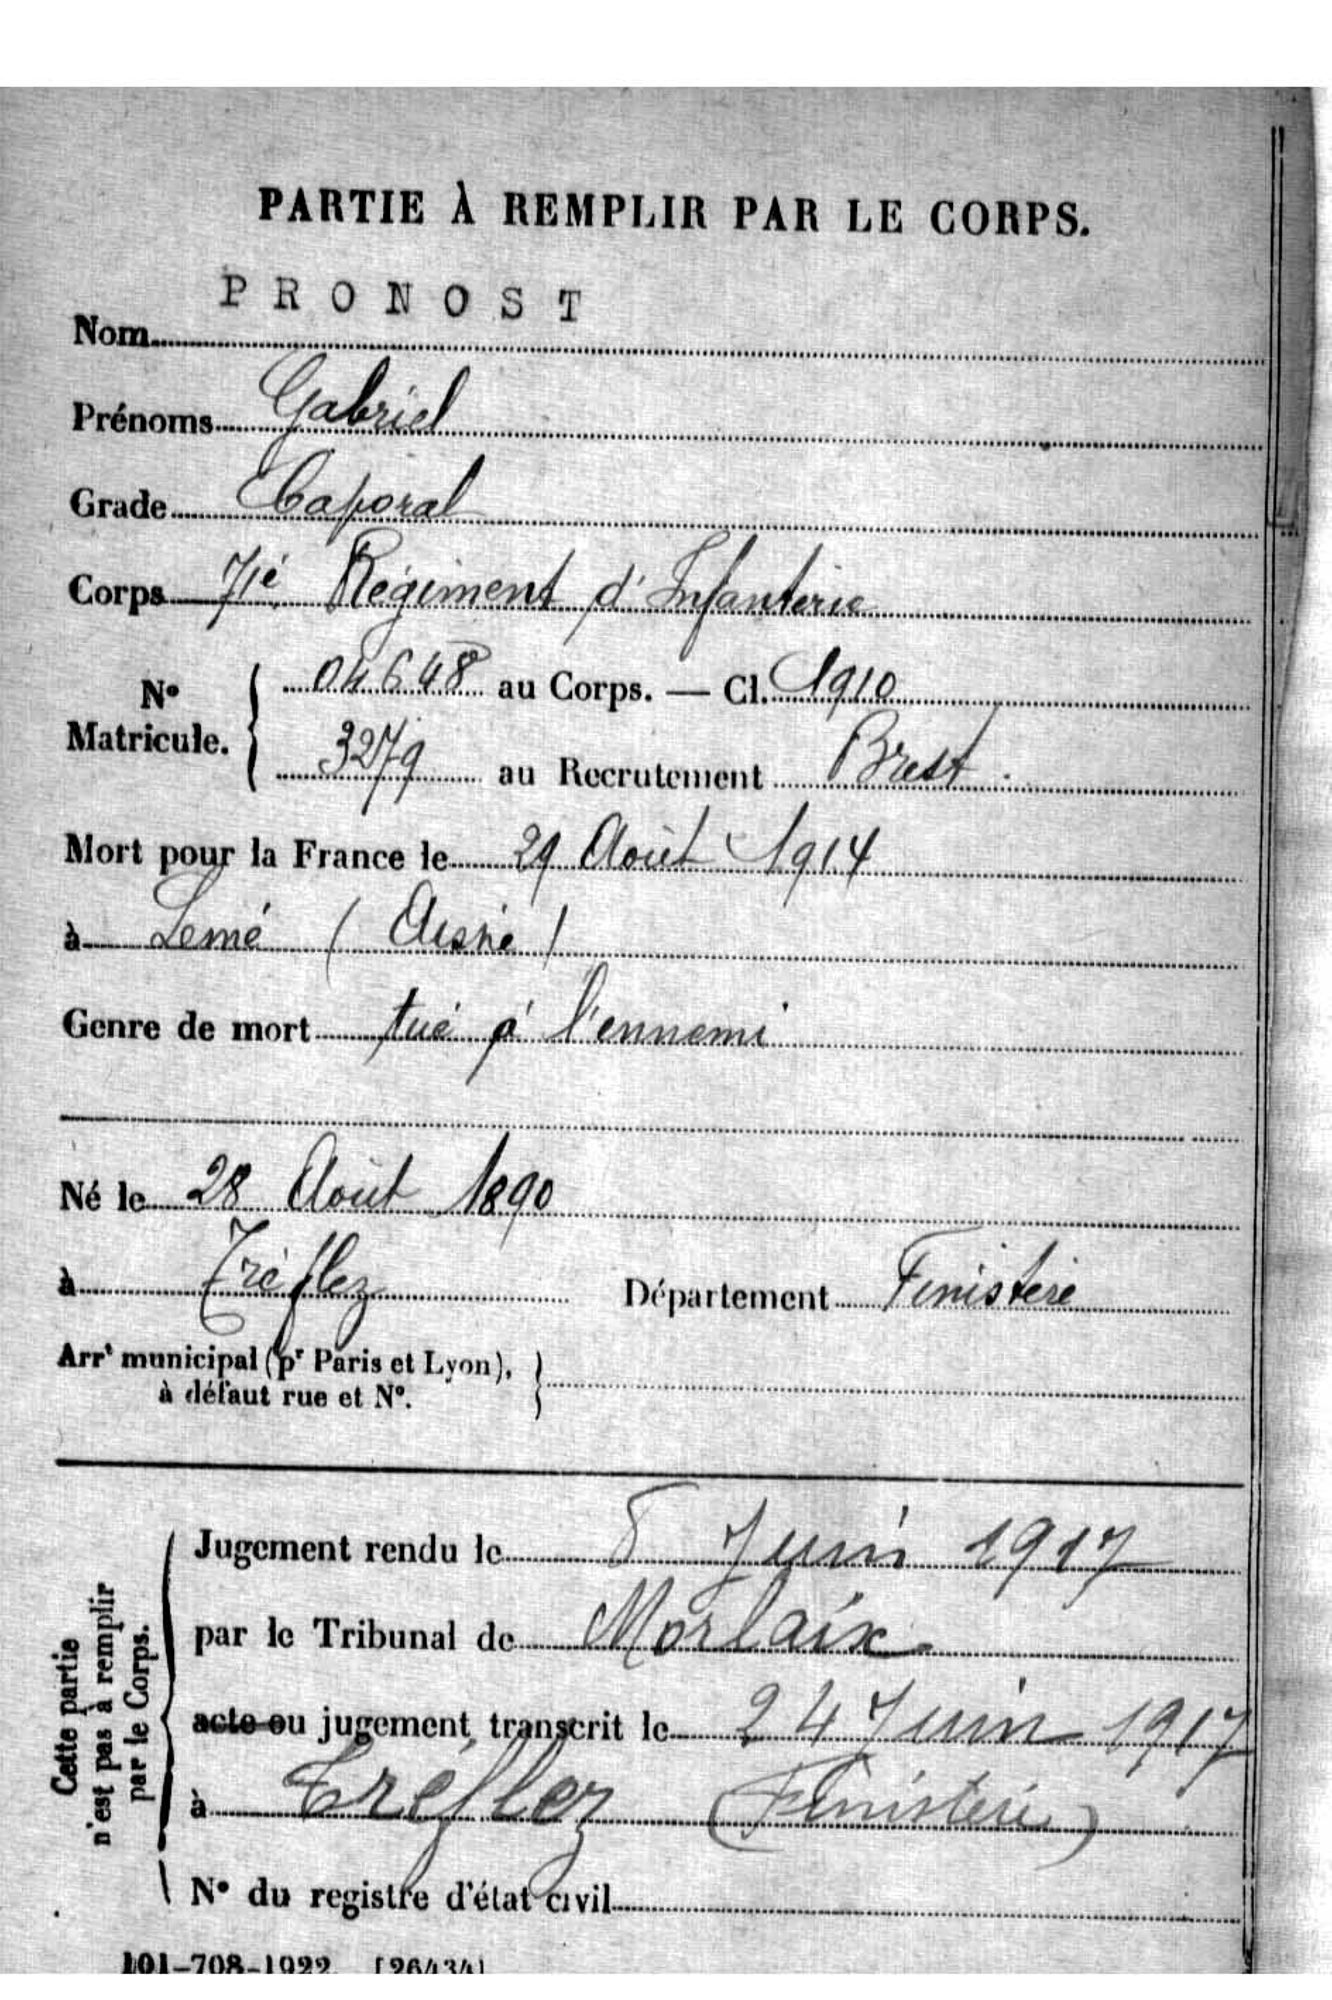 PARTIE À REMPLIR PAR LE CORPS.
PRONOST
Nom
Prénoms Gabriel
Grade Caporal
Corps 71è Régiment d'Infanterie
04648 au Corps. — Cl. 1910
N°
Matricule.
3279 au Recrutement Brest.
Mort pour la France le 29 Août 1914
à Lemé (Aisne)
Genre de mort tué à l'ennemi
Né le 28 Août 1890
à Tréflez Département Finistère
Arrt municipal (pr Paris et Lyon),
à défaut rue et N°.
Cette partie
n'est pas à remplir
par le Corps.
Jugement rendu le 8 Juin 1917
par le Tribunal de Morlaix
acte ou jugement transcrit le 24 Juin 1917
à Tréflez (Finistère)
N° du registre d'état civil
101-708-1922. [26434]